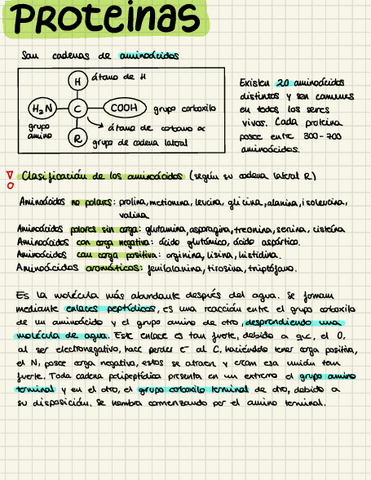 PROTEINAS
Son cadenas de aminoácidos
H
átomo de H
H₂N
C
COOH
grupo carboxilo
grupo
amino
átomo de carbono α
R
grupo de cadena lateral
Existen 20 aminoácidos
distintos y son comunes
en todos los seres
vivos. Cada proteína
posee entre 300-700
aminoácidos.
Clasificación de los aminoácidos (según su cadena lateral R)
Aminoácidos no polares: prolina, metionina, leucina, glicina, alanina, isoleucina,
valina
Aminoácidos polares sin carga: glutamina, asparagina, treonina, serina, cisteína
Aminoácidos con carga negativa: ácido glutámico, ácido aspártico.
Aminoácidos con carga positiva: arginina, lisina, histidina.
Aminoácidos aromáticos: fenilalanina, tirosina, triptófano.
Es la molécula más abundante después del agua. Se forman
mediante enlaces peptídicos, es una reacción entre el grupo carboxilo
de un aminoácido y el grupo amino de otro, desprendiendo una
molécula de agua. Este enlace es tan fuerte, debido a que, el O,
al ser electronegativo, hace perder e⁻ al C, haciéndole tener carga positiva,
el N, posee carga negativa, estos se atraen y crean esa unión tan
fuerte. Toda cadena polipeptídica presenta en un extremo el grupo amino
terminal y en el otro, el grupo carboxilo terminal de otro, debido a
su disposición. Se nombra comenzando por el amino terminal.